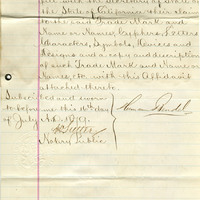 file with the Secretary of State of
the State of California their claim
to the said Trade Mark and
Name or Names, Cyphers, Letters
Characters, Symbols, Devices and
Designs and a copy and description
of such Trade Mark and Name or
Names, etc. with this Affidavit
attached thereto.
Subscribed and sworn
to before me this day
of July A.D. 18
Notary Public